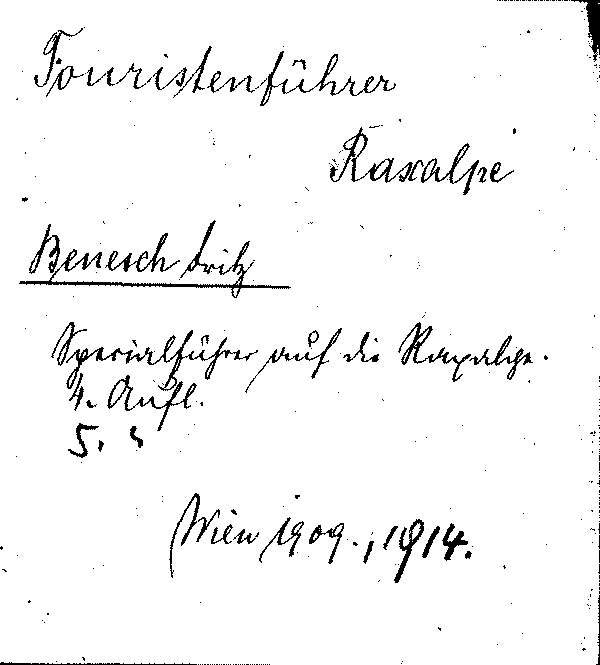 Touristenführer
Raxalpe
Benesch Fritz
Specialführer auf die Raxalpe.
4. Aufl.
5. "
Wien 1909., 1914.